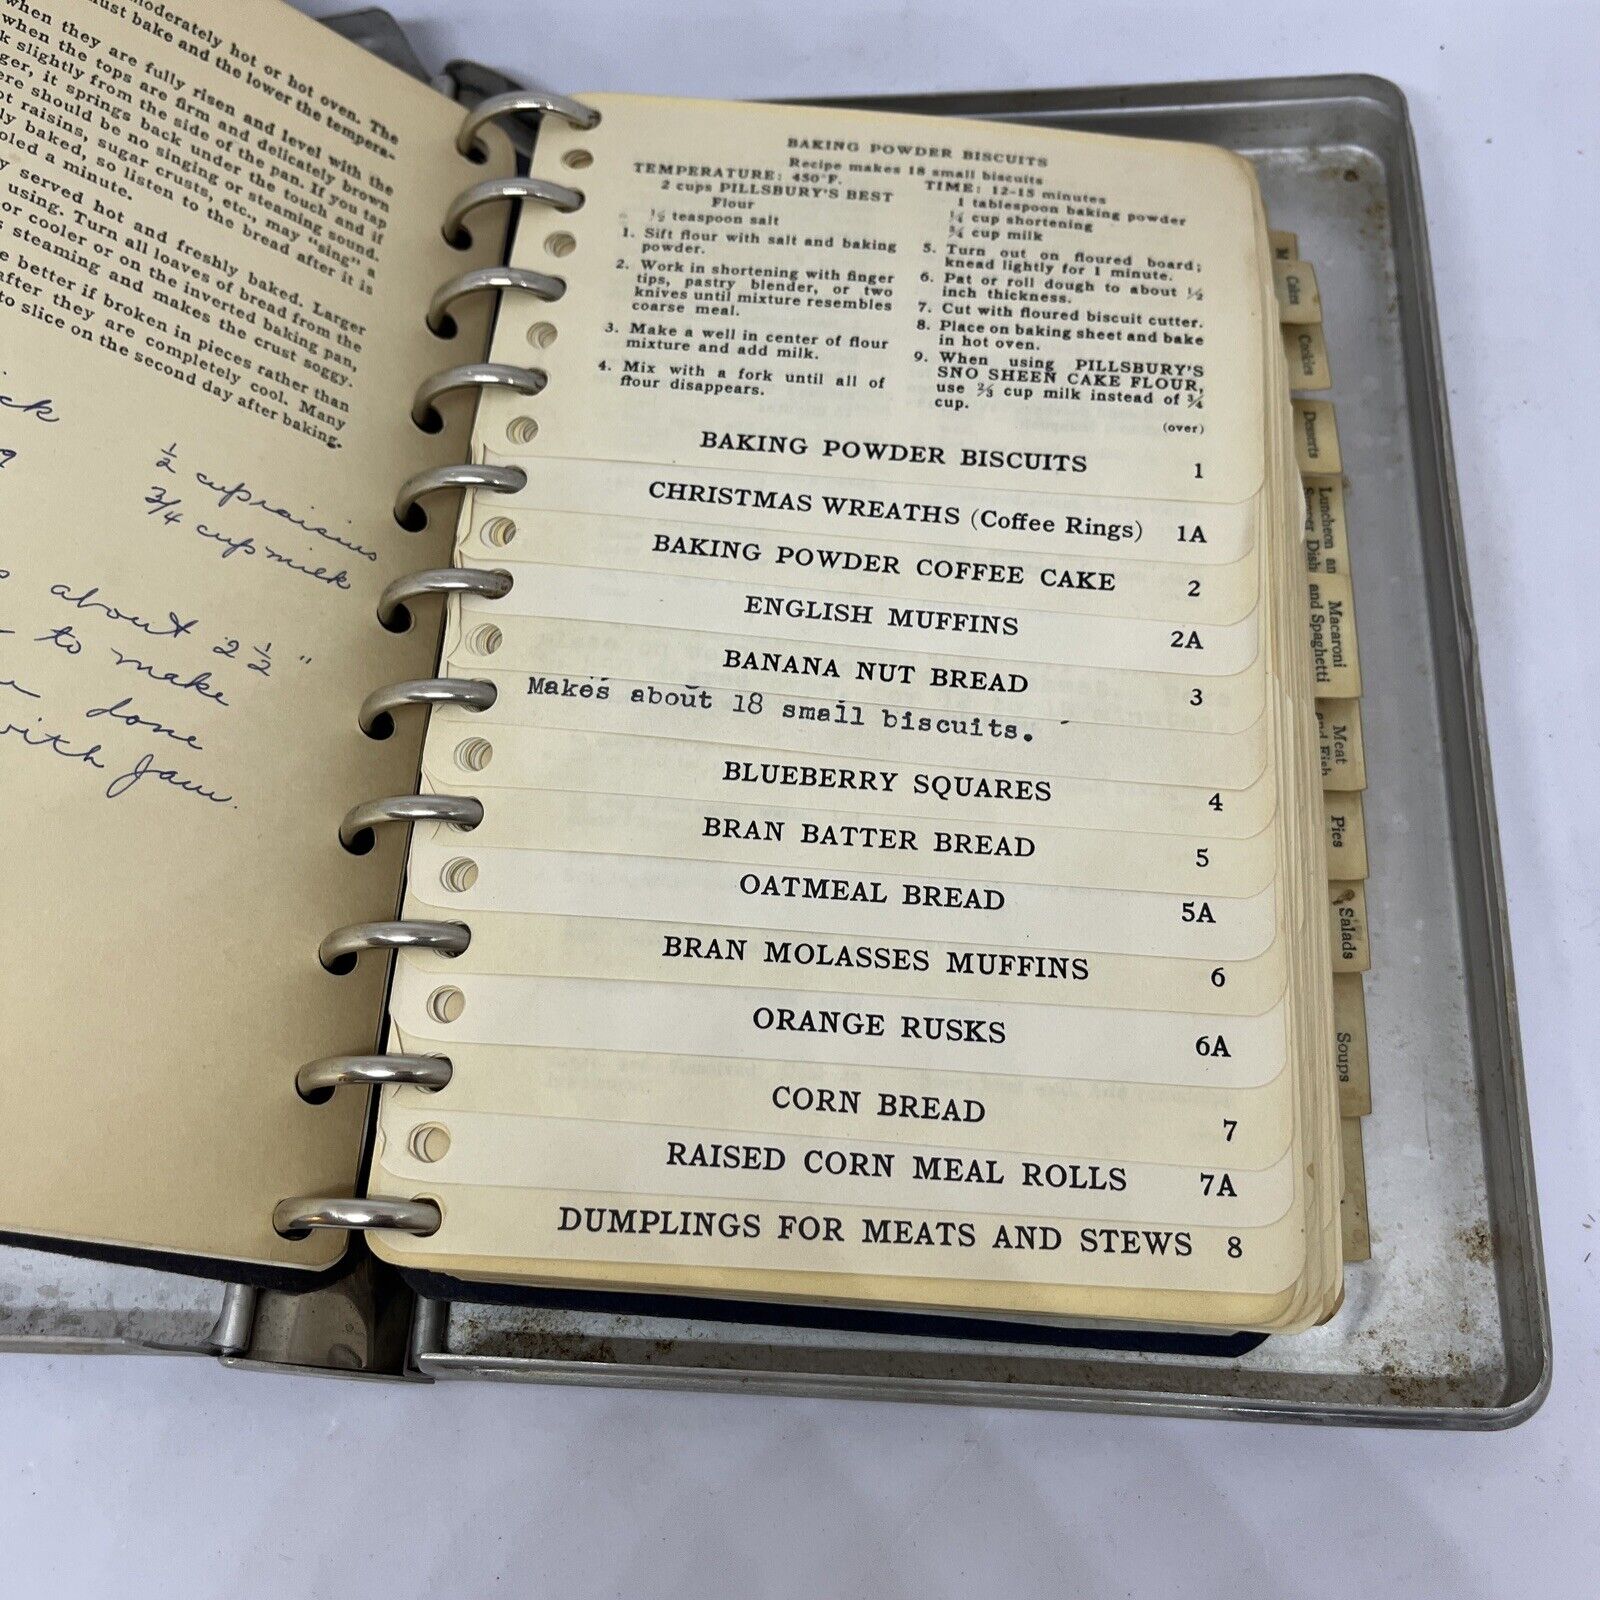 moderately hot or hot oven. The
must bake and the lower the tempera-
when they are fully risen and level with the
when the tops are firm and delicately brown
k slightly from the side of the pan. If you tap
ger, it springs back under the touch and if
ere should be no singing or steaming sound.
ot raisins, sugar crusts, etc., may "sing" a
ly baked, so listen to the bread after it is
oled a minute.
y served hot and freshly baked. Larger
using. Turn all loaves of bread from the
or cooler or on the inverted baking pan,
s steaming and makes the crust soggy.
e better if broken in pieces rather than
after they are completely cool. Many
to slice on the second day after baking.
ck
½ cup raisins
3/4 cup milk
about 2½"
to make
done
with Jam.
BAKING POWDER BISCUITS
Recipe makes 18 small biscuits
TEMPERATURE: 450°F.
TIME: 12-15 minutes
2 cups PILLSBURY'S BEST
Flour
½ teaspoon salt
1 tablespoon baking powder
¼ cup shortening
¾ cup milk
1. Sift flour with salt and baking
powder.
2. Work in shortening with finger
tips, pastry blender, or two
knives until mixture resembles
coarse meal.
3. Make a well in center of flour
mixture and add milk.
4. Mix with a fork until all of
flour disappears.
5. Turn out on floured board;
knead lightly for 1 minute.
6. Pat or roll dough to about ½
inch thickness.
7. Cut with floured biscuit cutter.
8. Place on baking sheet and bake
in hot oven.
9. When using PILLSBURY'S
SNO SHEEN CAKE FLOUR,
use ⅔ cup milk instead of ¾
cup.
(over)
BAKING POWDER BISCUITS 1
CHRISTMAS WREATHS (Coffee Rings) 1A
BAKING POWDER COFFEE CAKE 2
ENGLISH MUFFINS 2A
BANANA NUT BREAD 3
Makes about 18 small biscuits.
BLUEBERRY SQUARES 4
BRAN BATTER BREAD 5
OATMEAL BREAD 5A
BRAN MOLASSES MUFFINS 6
ORANGE RUSKS 6A
CORN BREAD 7
RAISED CORN MEAL ROLLS 7A
DUMPLINGS FOR MEATS AND STEWS 8
M
Cakes
Cookies
Desserts
Luncheon an
Supper Dish
Macaroni
and Spaghetti
Meat
and Fish
Pies
Salads
Soups